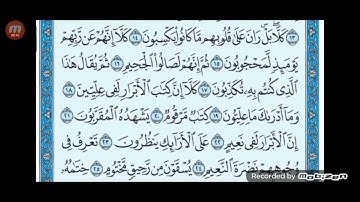 ١٣ كَلَّا بَلْ رَانَ عَلَىٰ قُلُوبِهِم مَّا كَانُوا يَكْسِبُونَ ١٤ كَلَّا إِنَّهُمْ عَن رَّبِّهِمْ
يَوْمَئِذٍ لَّمَحْجُوبُونَ ١٥ ثُمَّ إِنَّهُمْ لَصَالُوا الْجَحِيمِ ١٦ ثُمَّ يُقَالُ هَٰذَا
الَّذِي كُنتُم بِهِ تُكَذِّبُونَ ١٧ كَلَّا إِنَّ كِتَابَ الْأَبْرَارِ لَفِي عِلِّيِّينَ ١٨
وَمَا أَدْرَاكَ مَا عِلِّيُّونَ ١٩ كِتَابٌ مَّرْقُومٌ ٢٠ يَشْهَدُهُ الْمُقَرَّبُونَ ٢١
إِنَّ الْأَبْرَارَ لَفِي نَعِيمٍ ٢٢ عَلَى الْأَرَائِكِ يَنظُرُونَ ٢٣ تَعْرِفُ فِي
وُجُوهِهِمْ نَضْرَةَ النَّعِيمِ ٢٤ يُسْقَوْنَ مِن رَّحِيقٍ مَّخْتُومٍ ٢٥ خِتَامُهُ
Recorded by Mobizen